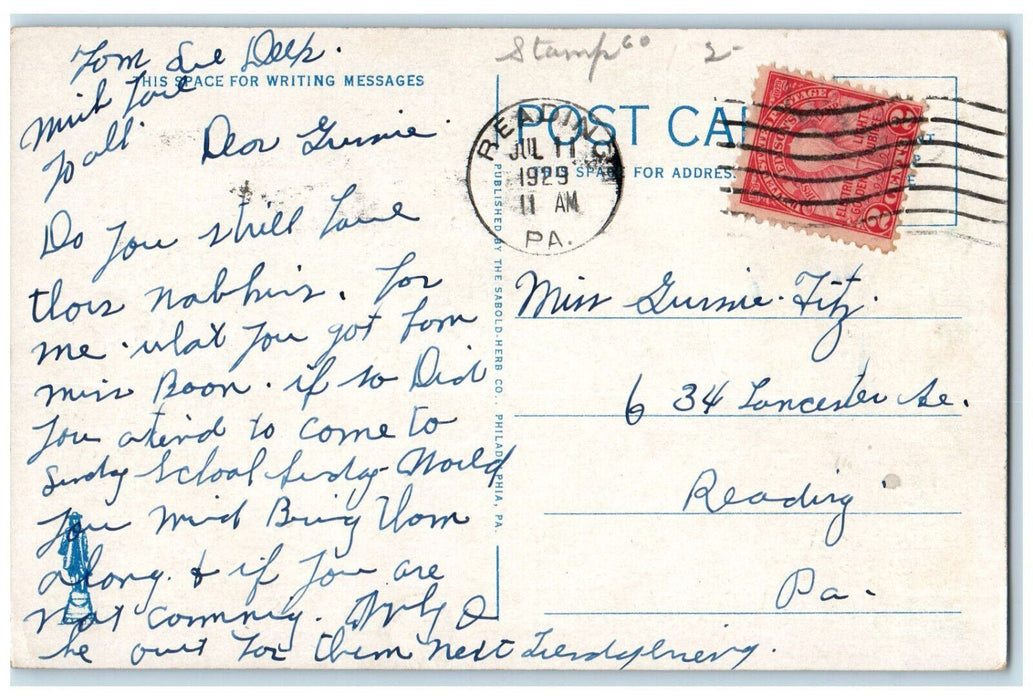 Tom Sue Delk.
THIS SPACE FOR WRITING MESSAGES
Mich Love
to all
Dear Gussie.
Do you still have
thois nabkins. for
me. what you got from
miss Boon. if so Did
you atend to come to
Sunday School Sunday Would
you mind Bring them
along. & if you are
not comming.
be out for them next
PUBLISHED BY THE SABOLD-HERB CO., PHILADELPHIA, PA.
Stamp 60 2-
POST CA
SPACE FOR ADDRES
READING
JUL 11
1929
11 AM
PA.
Miss Gussie. Fitz.
634 Lancester Ae.
Reading
Pa.